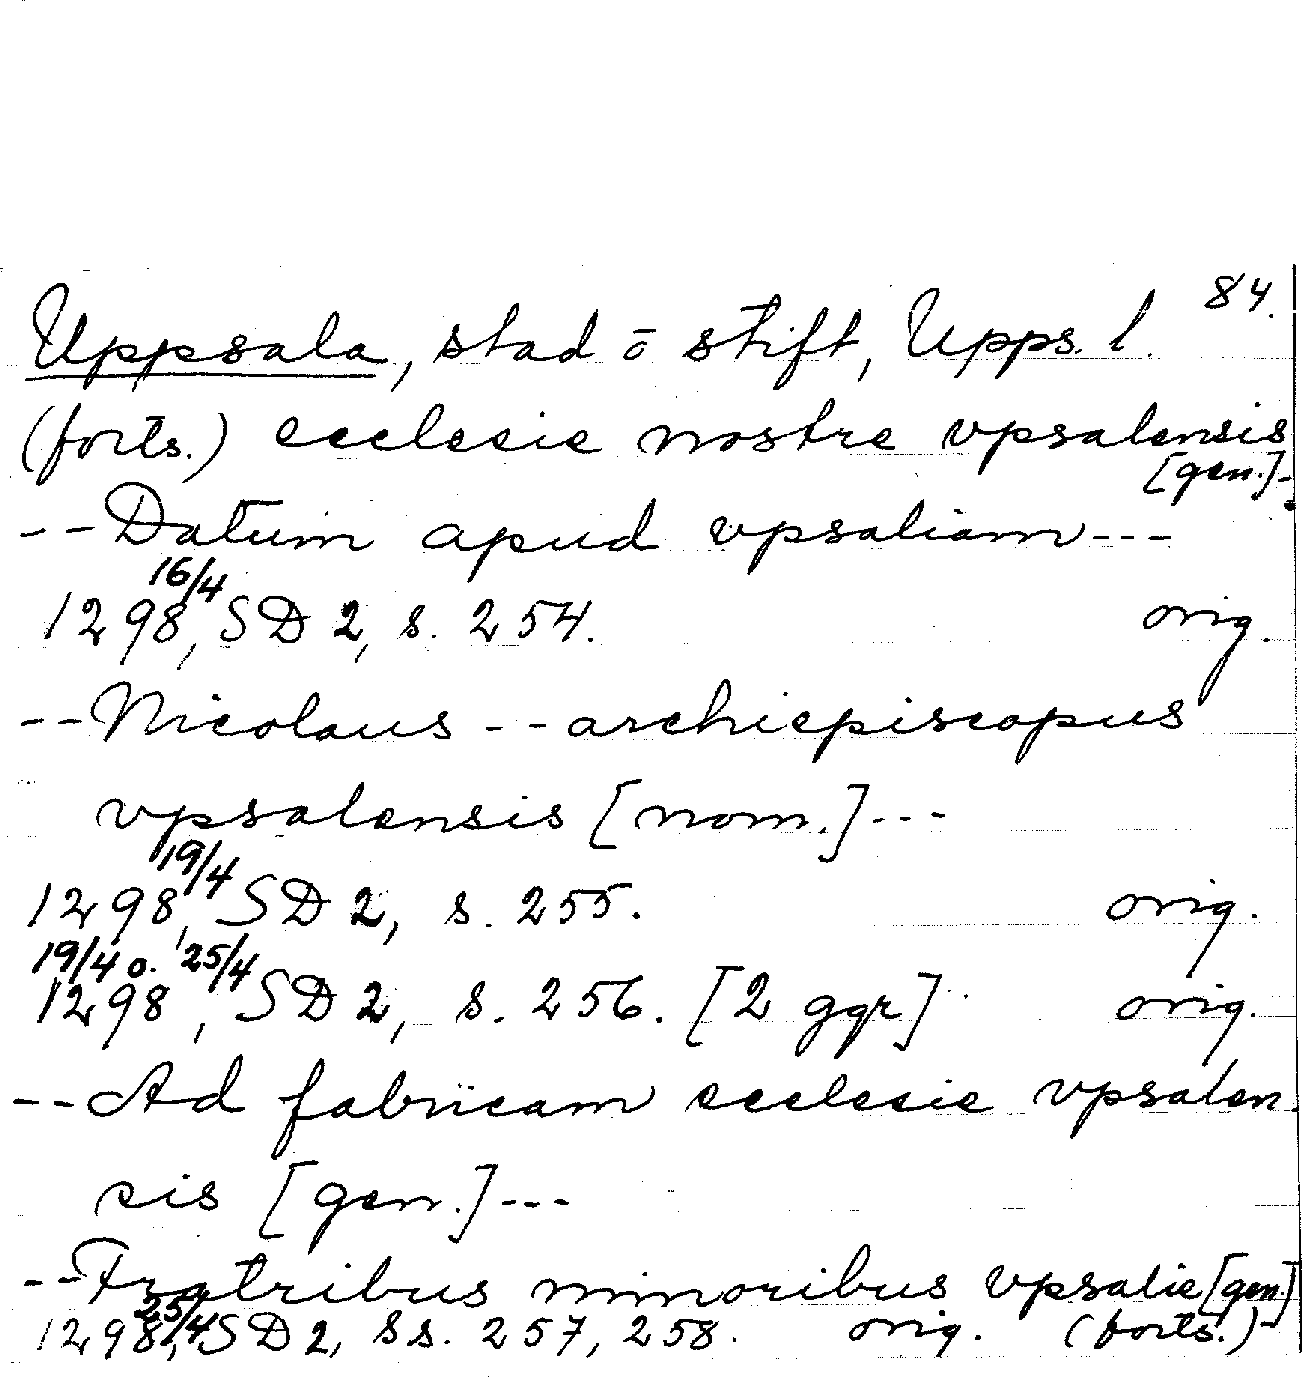 84.
Uppsala, stad ō stift, Upps. l.
(forts.) ecclesie nostre vpsalensis
[gen.]-
--Datum apud vpsaliam---
16/4
1298, SD 2, s. 254. orig.
--Nicolaus--archiepiscopus
vpsalensis [nom.]---
19/4
1298, SD 2, s. 255. orig.
19/4 o. 25/4
1298, SD 2, s. 256. [2 ggr] orig.
--Ad fabricam ecclesie vpsalen
sis [gen.]---
--Fratribus minoribus vpsalie [gen]-
25/4
1298, SD 2, ss. 257, 258. orig. (forts.)